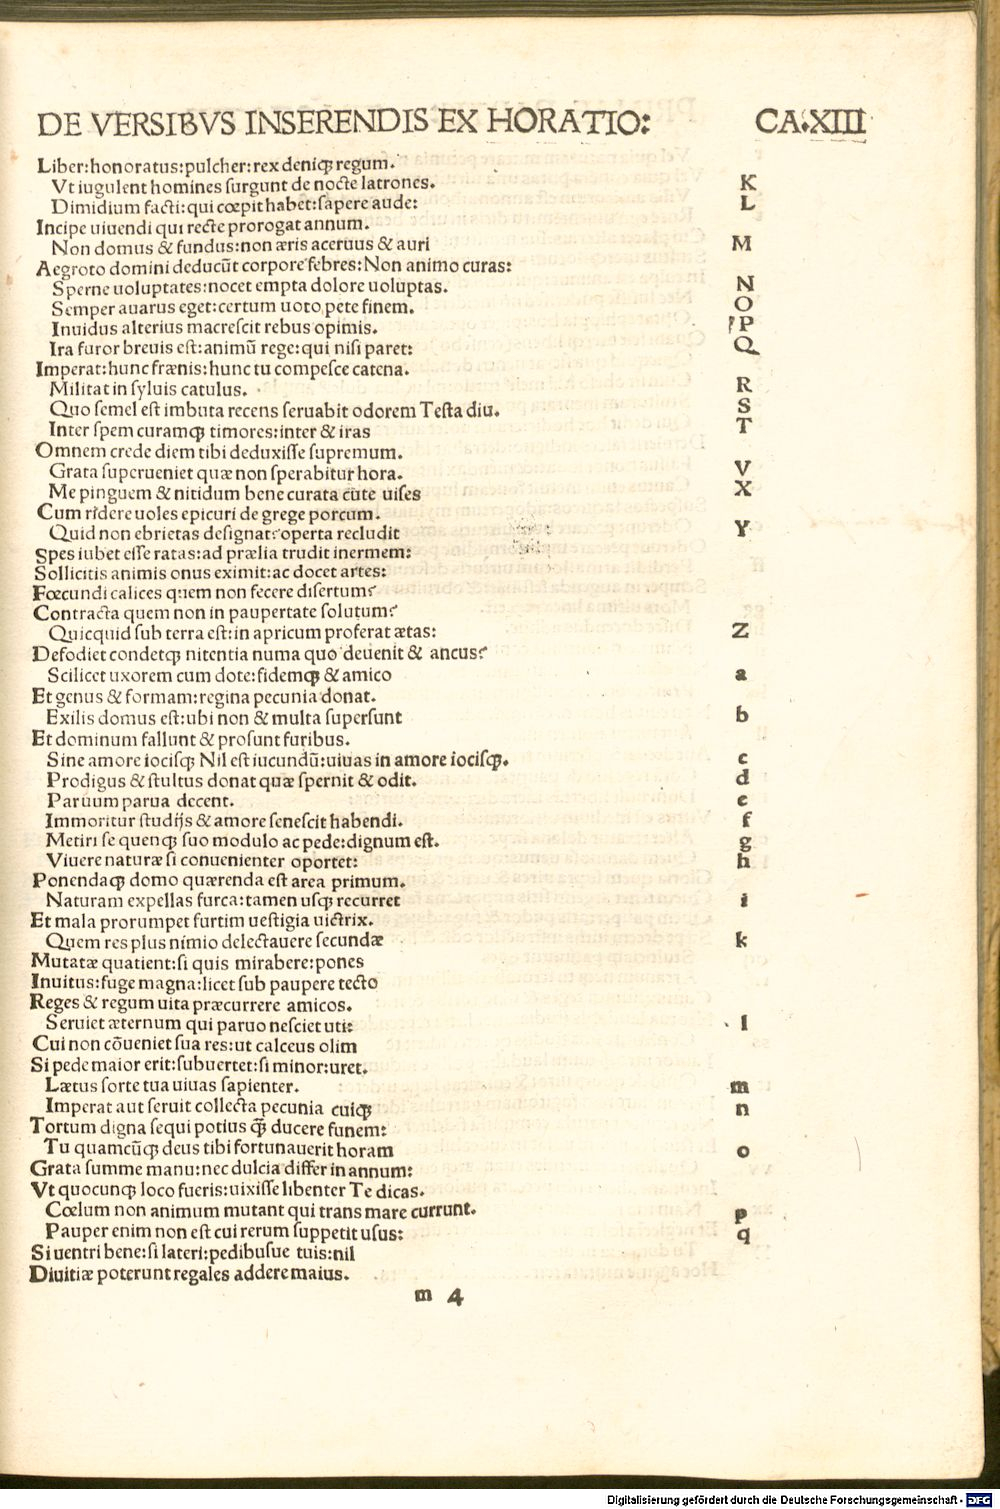 DE VERSIBVS INSERENDIS EX HORATIO: CA.XIII
Liber:honoratus:pulcher:rex deniqꝫ regum.
Vt iugulent homines surgunt de nocte latrones. K
Dimidium facti:qui cœpit habet:sapere aude: L
Incipe uiuendi qui recte prorogat annum.
Non domus & fundus:non æris aceruus & auri M
Aegroto domini deducūt corpore febres:Non animo curas:
Sperne uoluptates:nocet empta dolore uoluptas. N
Semper auarus eget:certum uoto pete finem. O
Inuidus alterius macrescit rebus opimis. P
Ira furor breuis est:animū rege:qui nisi paret: Q
Imperat:hunc frænis:hunc tu compesce catena.
Militat in syluis catulus. R
Quo semel est imbuta recens seruabit odorem Testa diu. S
Inter spem curamqꝫ timores:inter & iras T
Omnem crede diem tibi deduxisse supremum.
Grata superueniet quæ non sperabitur hora. V
Me pinguem & nitidum bene curata cute uises X
Cum ridere uoles epicuri de grege porcum.
Quid non ebrietas designat? operta recludit Y
Spes iubet esse ratas:ad prælia trudit inermem:
Sollicitis animis onus eximit:ac docet artes:
Fœcundi calices quem non fecere disertum?
Contracta quem non in paupertate solutum?
Quicquid sub terra est:in apricum proferat ætas: Z
Defodiet condetqꝫ nitentia numa quo deuenit & ancus?
Scilicet uxorem cum dote:fidemqꝫ & amico a
Et genus & formam:regina pecunia donat.
Exilis domus est:ubi non & multa supersunt b
Et dominum fallunt & prosunt furibus.
Sine amore iocisqꝫ Nil est iucundū:uiuas in amore iocisqꝫ. c
Prodigus & stultus donat quæ spernit & odit. d
Paruum parua decent. e
Immoritur studijs & amore senescit habendi. f
Metiri se quenqꝫ suo modulo ac pede:dignum est. g
Viuere naturæ si conuenienter oportet: h
Ponendaqꝫ domo quærenda est area primum.
Naturam expellas furca:tamen usqꝫ recurret i
Et mala prorumpet furtim uestigia uictrix.
Quem res plus nimio delectauere secundæ k
Mutatæ quatient:si quis mirabere:pones
Inuitus:fuge magna:licet sub paupere tecto
Reges & regum uita præcurrere amicos.
Seruiet æternum qui paruo nesciet uti: l
Cui non cōueniet sua res:ut calceus olim
Si pede maior erit:subuertet:si minor:uret.
Lætus sorte tua uiuas sapienter. m
Imperat aut seruit collecta pecunia cuiqꝫ n
Tortum digna sequi potius qꝫ̄ ducere funem:
Tu quamcūqꝫ deus tibi fortunauerit horam o
Grata summe manu:nec dulcia differ in annum:
Vt quocunqꝫ loco fueris:uixisse libenter Te dicas.
Cœlum non animum mutant qui trans mare currunt. p
Pauper enim non est cui rerum suppetit usus: q
Si uentri bene:si lateri:pedibusue tuis:nil
Diuitiæ poterunt regales addere maius.
m 4
Digitalisierung gefördert durch die Deutsche Forschungsgemeinschaft - DFG